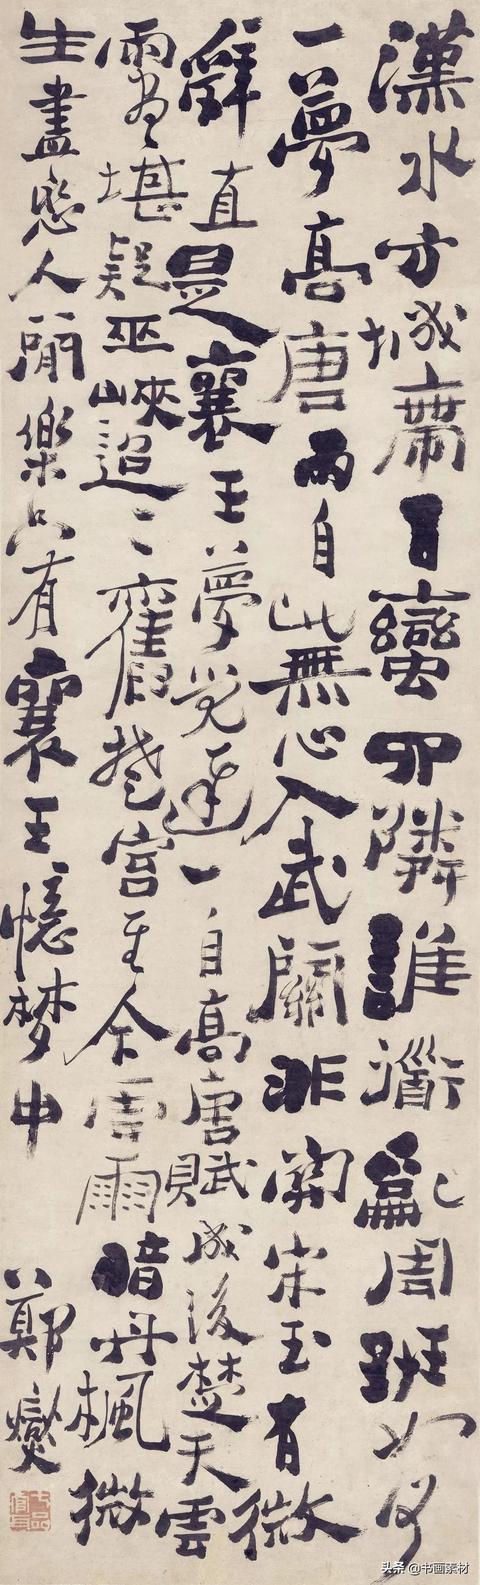 漢水方城帶百蠻四隣誰道亂周班如何
一夢高唐雨自此無心入武關非關宋玉有微
辭直是襄王夢覺遲一自高唐賦成後楚天雲
雨盡堪疑巫峽迢〻舊楚宮至今雲雨暗丹楓微
生盡戀人間樂只有襄王憶夢中 鄭燮
头条 @书画素材